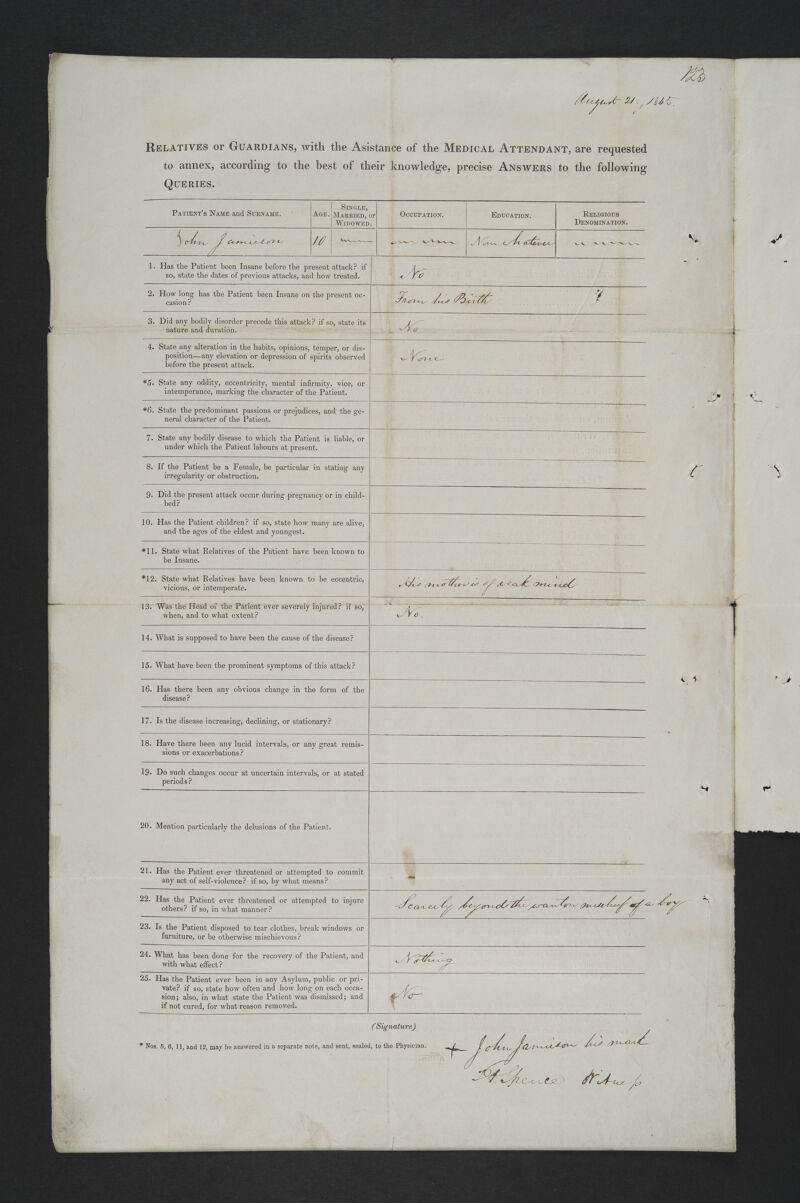 123
August 21, 1865.
RELATIVES or GUARDIANS, with the Asistance of the MEDICAL ATTENDANT, are requested
to annex, according to the best of their knowledge, precise ANSWERS to the following
QUERIES.
PATIENT'S NAME and SURNAME. AGE. SINGLE, MARRIED, or WIDOWED. OCCUPATION. EDUCATION. RELIGIOUS DENOMINATION.
John Jamieson 10 None whatever
1. Has the Patient been Insane before the present attack? if
so, state the dates of previous attacks, and how treated.
No
2. How long has the Patient been Insane on the present oc-
casion?
From his Birth
3. Did any bodily disorder precede this attack? if so, state its
nature and duration.
No
4. State any alteration in the habits, opinions, temper, or dis-
position—any elevation or depression of spirits observed
before the present attack.
None
*5. State any oddity, eccentricity, mental infirmity, vice, or
intemperance, marking the character of the Patient.
*6. State the predominant passions or prejudices, and the ge-
neral character of the Patient.
7. State any bodily disease to which the Patient is liable, or
under which the Patient labours at present.
8. If the Patient be a Female, be particular in stating any
irregularity or obstruction.
9. Did the present attack occur during pregnancy or in child-
bed?
10. Has the Patient children? if so, state how many are alive,
and the ages of the eldest and youngest.
*11. State what Relatives of the Patient have been known to
be Insane.
*12. State what Relatives have been known to be eccentric,
vicious, or intemperate.
His mother is of weak mind
13. Was the Head of the Patient ever severely injured? if so,
when, and to what extent?
No.
14. What is supposed to have been the cause of the disease?
15. What have been the prominent symptoms of this attack?
16. Has there been any obvious change in the form of the
disease?
17. Is the disease increasing, declining, or stationary?
18. Have there been any lucid intervals, or any great remis-
sions or exacerbations?
19. Do such changes occur at uncertain intervals, or at stated
periods?
20. Mention particularly the delusions of the Patient.
21. Has the Patient ever threatened or attempted to commit
any act of self-violence? if so, by what means?
22. Has the Patient ever threatened or attempted to injure
others? if so, in what manner?
Scarcely beyond the wanton mischief of a boy
23. Is the Patient disposed to tear clothes, break windows or
furniture, or be otherwise mischievous?
24. What has been done for the recovery of the Patient, and
with what effect?
Nothing
25. Has the Patient ever been in any Asylum, public or pri-
vate? if so, state how often and how long on each occa-
sion; also, in what state the Patient was dismissed; and
if not cured, for what reason removed.
No
(Signature)
* Nos. 5, 6, 11, and 12, may be answered in a separate note, and sent, sealed, to the Physician.
+ John Jamieson his mark
Spence Witness